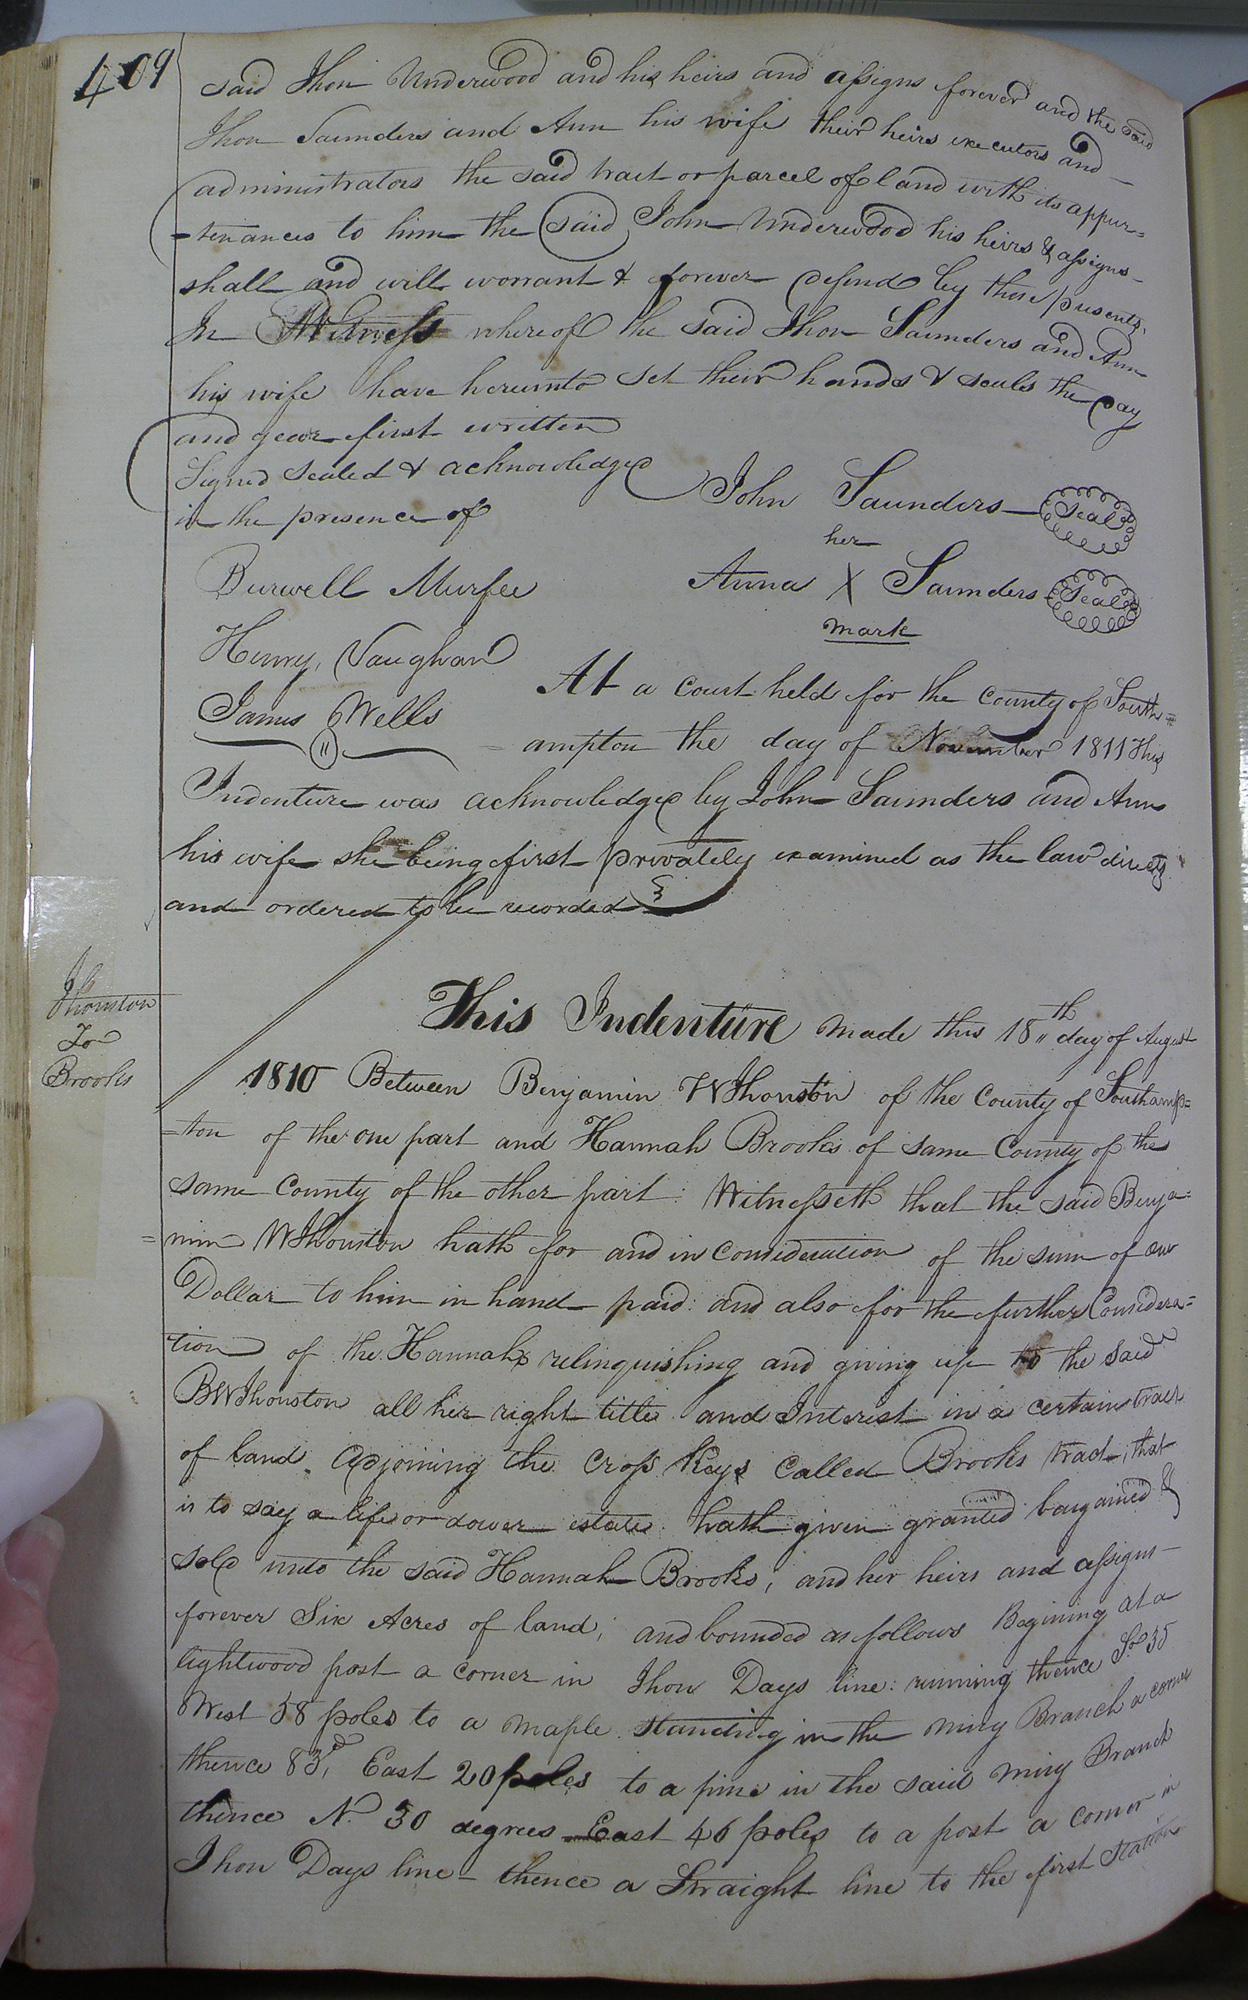 409
said Jhon Underwood and his heirs and assigns forever and the said
Jhon Saunders and Ann his wife their heirs executors and
administrators the said tract or parcel of land with its appur=
=tenances to him the said John Underwood his heirs & assigns
shall and will worrant & forever defend by these presents.
In Witness whereof the said Jhon Saunders and Ann
his wife have hereunto set their hands & seales the day
and year first written
Signed Sealed & acknowledged
in the presence of
John Saunders Seal
her
Burwell Murfee
Anna X Saunders Seal
mark
Henry Vaughan
James Wells
At a court held for the county of South=
=ampton the day of November 1811 This
Indenture was acknowledged by John Saunders and Ann
his wife she being first privately examined as the law directs
and ordered to be recorded
Jhonston
To
Brooks
This Indenture made this 18th day of August
1810 Between Benjamin W Jhonston of the County of Southamp=
=ton of the one part and Hannah Brooks of same County of the
same County of the other part: Witnesseth that the said Benja=
=min W Jhonston hath for and in Consideration of the sum of one
Dollar to him in hand paid: and also for the further Considera=
tion of the Hannahs relinquishing and giving up to the said
B W Jhonston all her right title and Interest in a certain tract
of land adjoining the Cross Keys Called Brooks tract, that
is to say a life or dower estate: hath given granted bargained &
sold unto the said Hannah Brooks, and her heirs and assigns
forever Six Acres of land, and bounded as follows Begining at a
lightwood post a corner in Jhon Days line: running thence So 35
West 58 poles to a maple Standing in the miry Branch a corner
thence 83d, East 20 poles to a pine in the said miry Branch
thence N. 30 degrees East 46 poles to a post a corner in
Jhon Days line thence a Straight line to the first Station